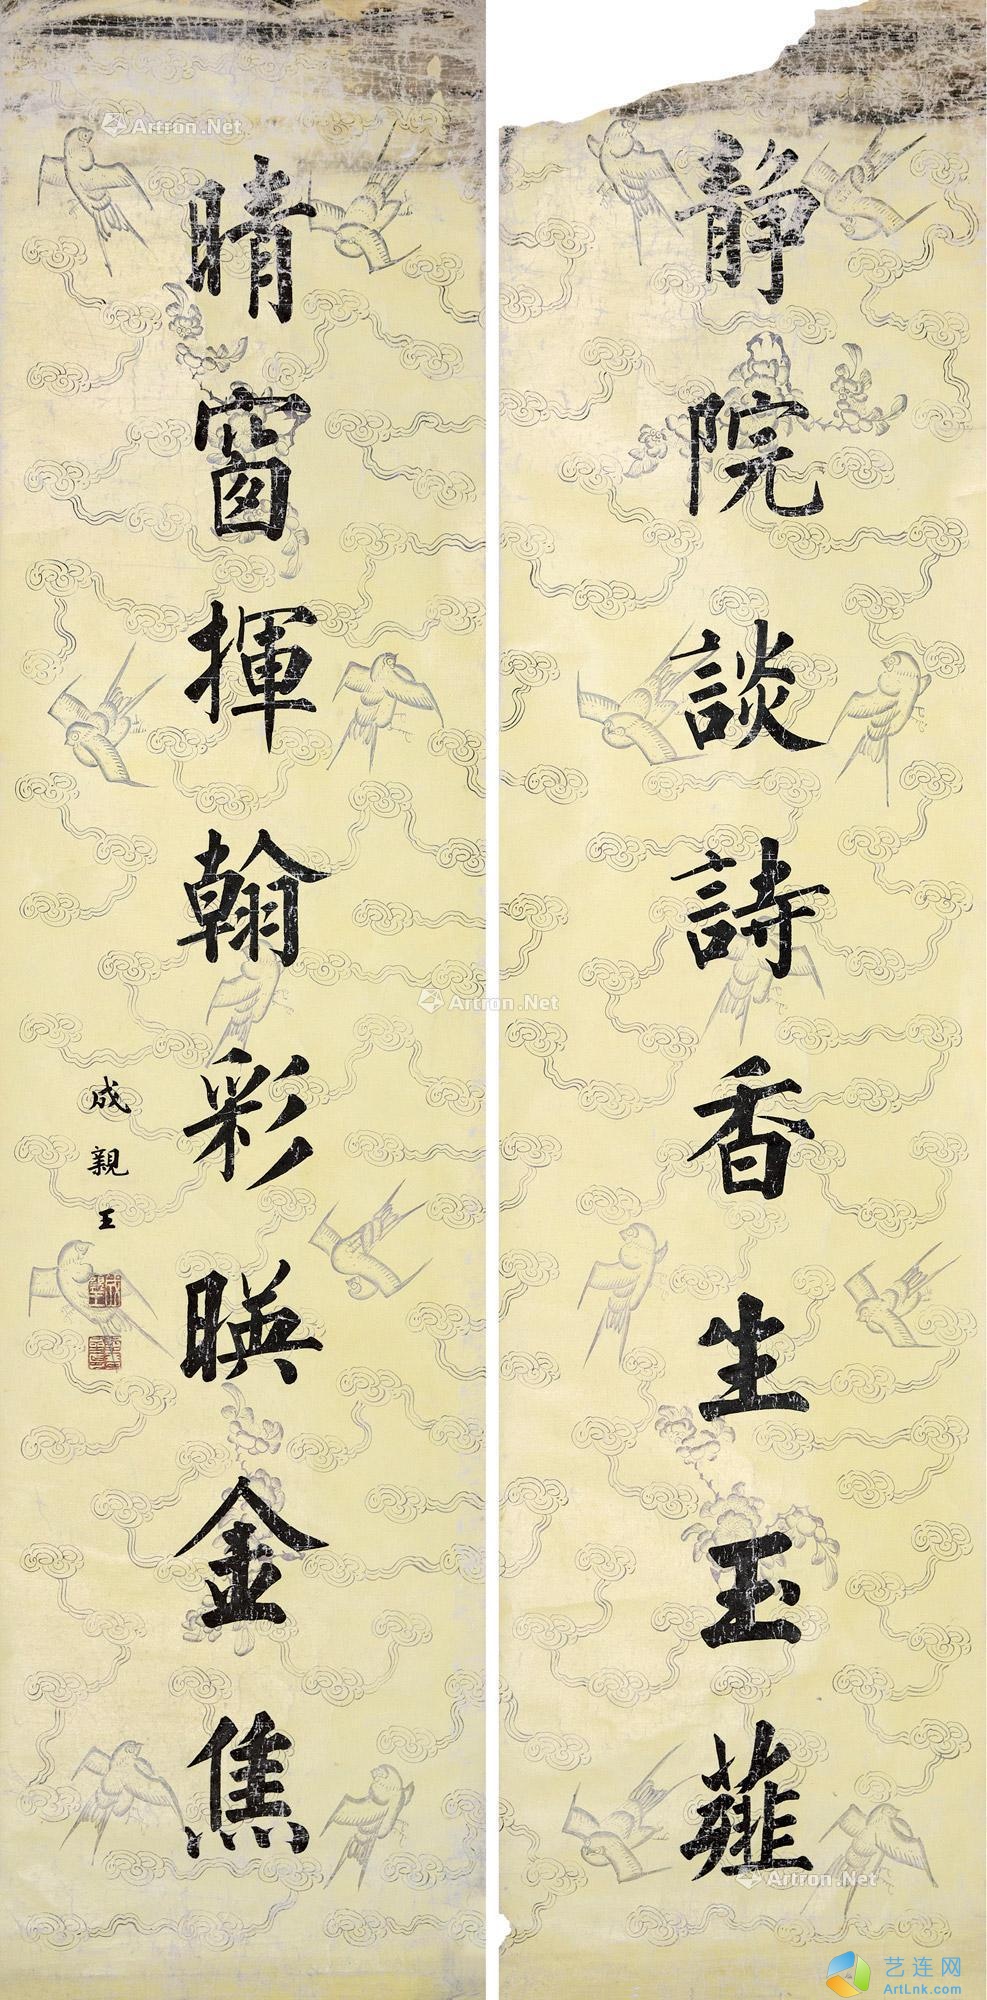 静院談詩香生玉薤
晴窗揮翰彩暎金焦
成親王
Artron.Net
Artron.Net
Artron.Net
Artron.Net
艺连网
ArtLnk.com